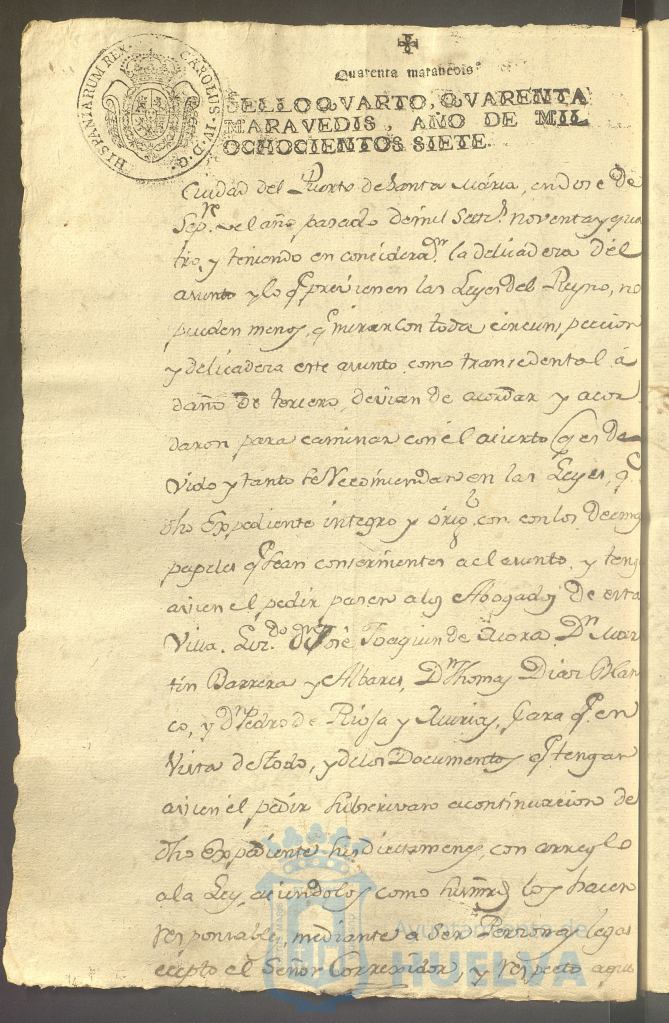 HISPANIARUM REX. CAROLUS. IV. D. G.
Quarenta maravedis
SELLO QVARTO, QVARENTA
MARAVEDIS, AÑO DE MIL
OCHOCIENTOS SIETE.
Ciudad del Puerto de Santa Maria, en dose de
Sep.re el año pasado de mil Setc.s noventa y qua
tro, y teniendo en considera.on la delicadesa del
asunto y lo q.e previenen las Leyes del Reyno, no
pueden menos, q.e mirar con toda circunspeccion
y delicadesa este asunto, como transedental à
daño de tercero, devian de acordar y acor
daron para caminar con el acierto q.e es de
vido y tanto se recomiendan en las Leyes, q.e
dho Expediente integro y orig.l con con los demas
papeles q.e sean consernientes a el asunto, y tengan
a vien el pedir pasen a los Abogados de esta
Villa. Liz.do D.n José Joaquin de Mora, D.n Mar
tin Barrera y Albares, D.n Thomas Dias Blan
co, y D.n Pedro de Riosa y Murias, para q.e en
Vista de todo, y de los Documentos q.e tengan
a vien el pedir subscrivan a continuacion de
dho Expediente sus dictamenes, con arreglo
a la Ley, aciendolos como los hacen
responsables, mediante a ser Personas legas
ecepto el Señor Corregidor, y respecto aque
Ayuntamiento de
HUELVA